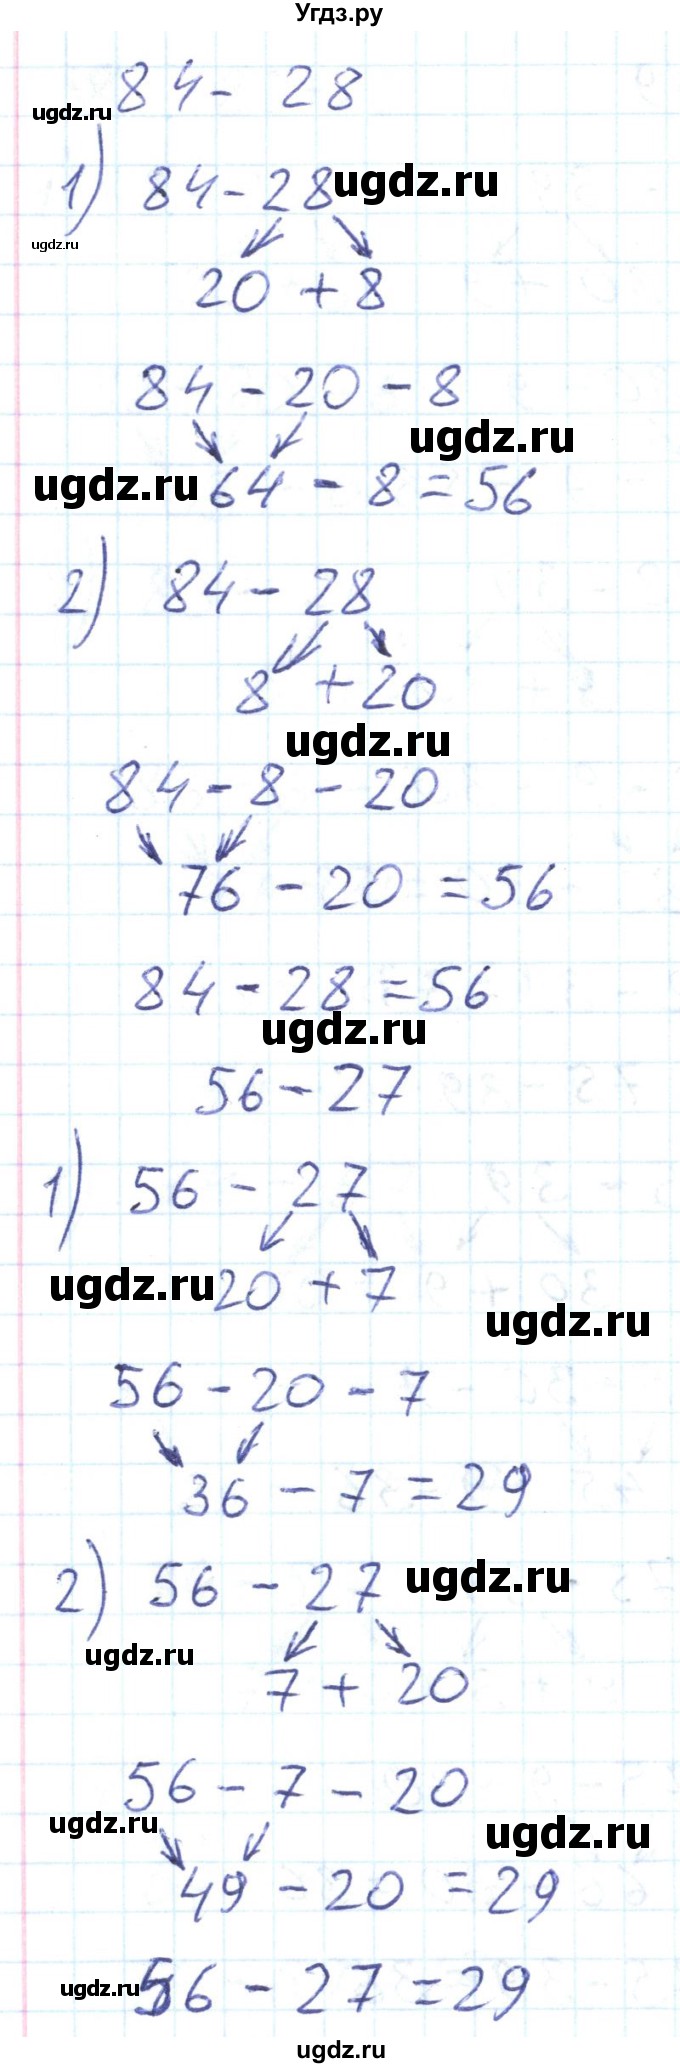 Угдз.ру
84 - 28
ugdz.ru
1) 84 - 28 ugdz.ru
ugdz.ru
20 + 8
84 - 20 - 8
ugdz.ru
ugdz.ru 64 - 8 = 56
2) 84 - 28
8 + 20
ugdz.ru
84 - 8 - 20
76 - 20 = 56
84 - 28 = 56
ugdz.ru
56 - 27
1) 56 - 27
ugdz.ru 20 + 7
ugdz.ru
56 - 20 - 7
36 - 7 = 29
2) 56 - 27 ugdz.ru
ugdz.ru
7 + 20
56 - 7 - 20
ugdz.ru ugdz.ru
49 - 20 = 29
ugdz.ru 56 - 27 = 29
ugdz.ru